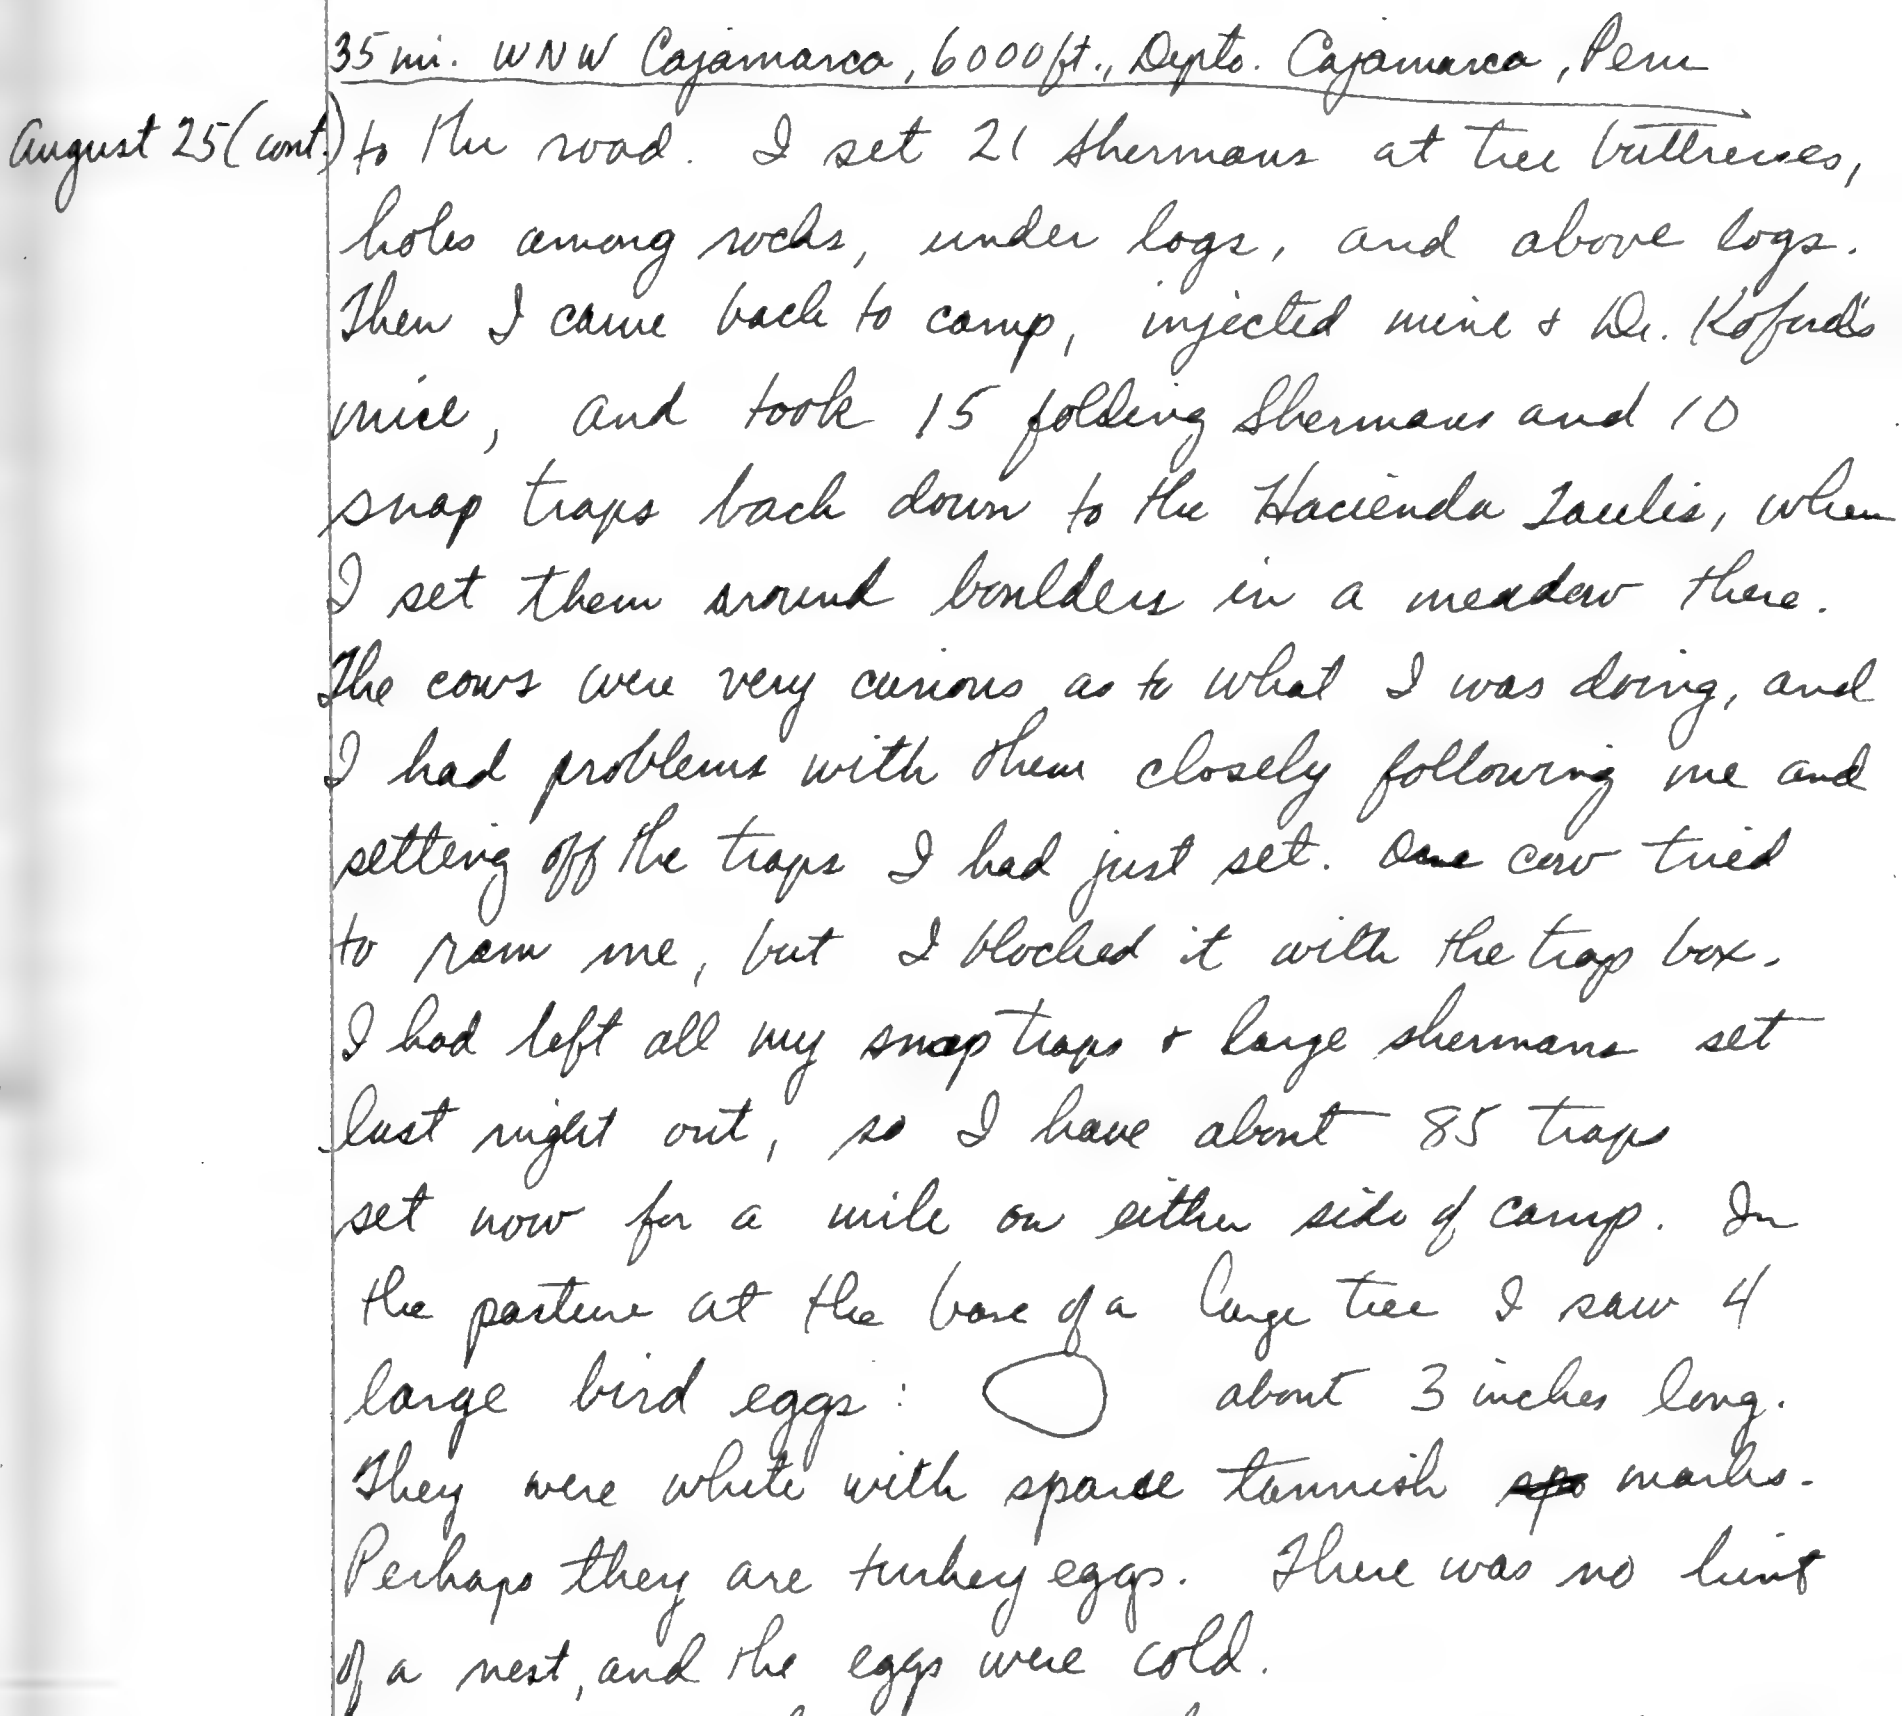 35 mi. WNW Cajamarca, 6000 ft., Depto. Cajamarca, Peru
August 25 (cont.) to the road. I set 21 shermans at tree buttresses,
holes among rocks, under logs, and above logs.
Then I came back to camp, injected mine & Dr. Koford's
mice, and took 15 folding Shermans and 10
snap traps back down to the Hacienda Taulis, where
I set them around boulders in a meadow there.
The cows were very curious as to what I was doing, and
I had problems with them closely following me and
setting off the traps I had just set. One cow tried
to ram me, but I blocked it with the trap box.
I had left all my snap traps & large shermans set
last night out, so I have about 85 traps
set now for a mile on either side of camp. In
the pasture at the base of a large tree I saw 4
large bird eggs: about 3 inches long.
They were white with sparse tannish marks.
Perhaps they are turkey eggs. There was no hint
of a nest, and the eggs were cold.